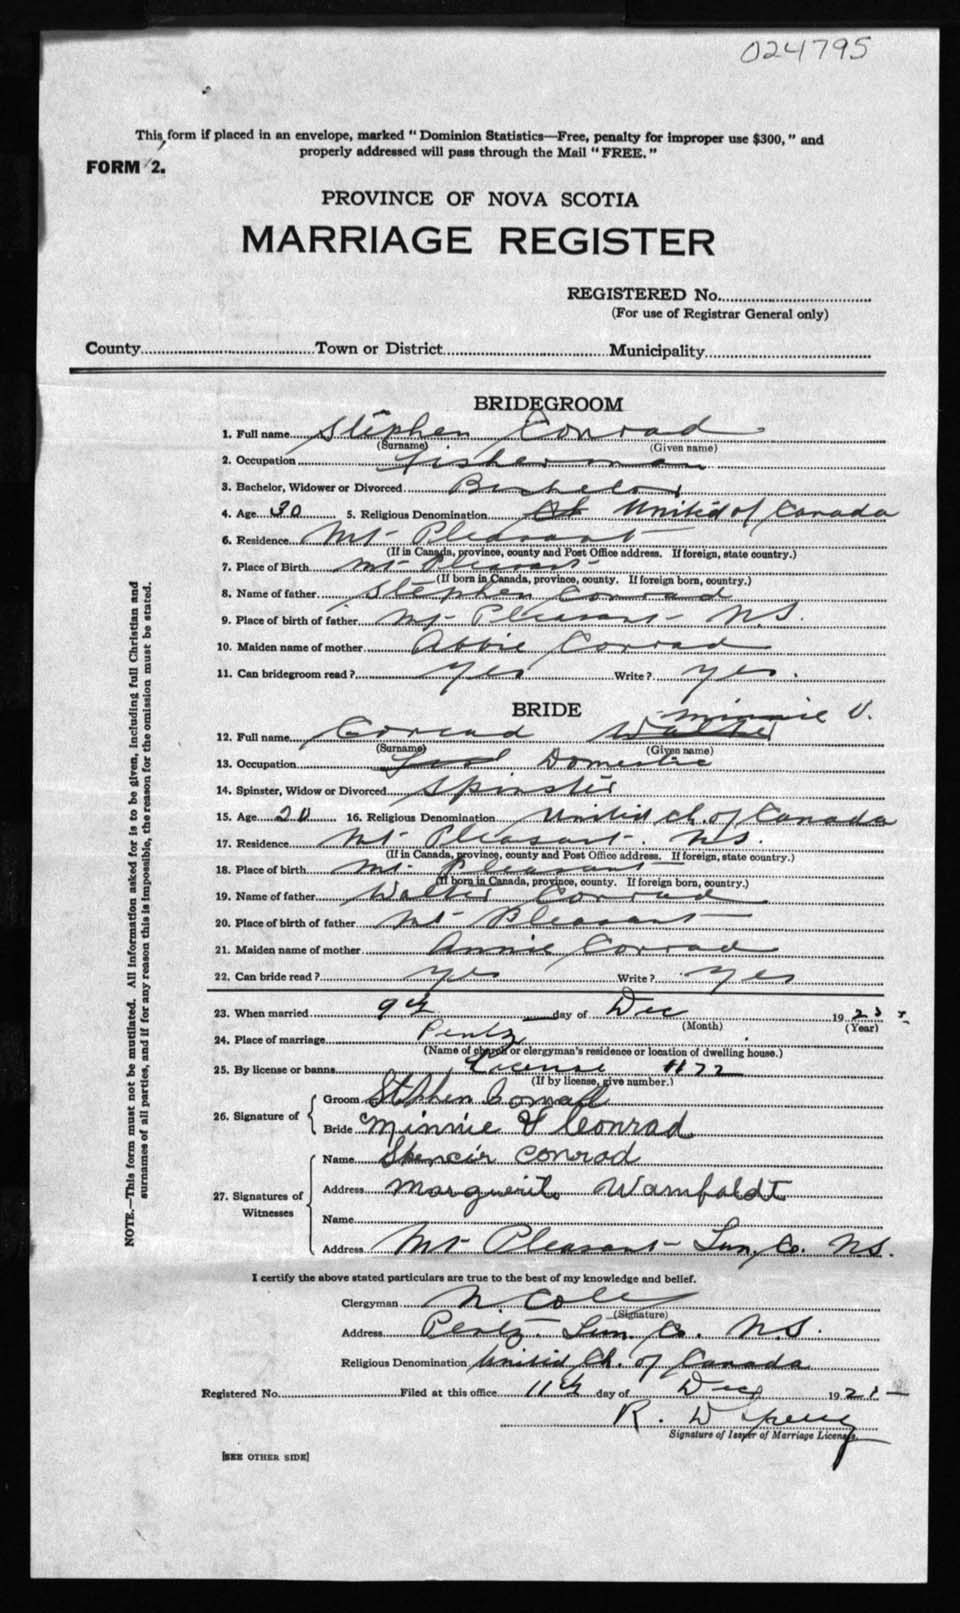 024795
This form if placed in an envelope, marked "Dominion Statistics—Free, penalty for improper use $300," and
properly addressed will pass through the Mail "FREE."
FORM 2.
PROVINCE OF NOVA SCOTIA
MARRIAGE REGISTER
REGISTERED No.
(For use of Registrar General only)
County Town or District Municipality
BRIDEGROOM
1. Full name Stephen Conrad
(Surname) (Given name)
2. Occupation fisherman
3. Bachelor, Widower or Divorced Bachelor
4. Age 30 5. Religious Denomination Ch United of Canada
6. Residence Mt Pleasant
(If in Canada, province, county and Post Office address. If foreign, state country.)
7. Place of Birth Mt Pleasant
(If born in Canada, province, county. If foreign born, country.)
8. Name of father Stephen Conrad
9. Place of birth of father Mt Pleasant N.S.
10. Maiden name of mother Abbie Conrad
11. Can bridegroom read? yes Write? yes.
BRIDE
Minnie V.
12. Full name Conrad Walter
(Surname) (Given name)
13. Occupation Domestic
14. Spinster, Widow or Divorced Spinster
15. Age 20 16. Religious Denomination United Ch. of Canada
17. Residence Mt Pleasant. N.S.
(If in Canada, province, county and Post Office address. If foreign, state country.)
18. Place of birth Mt. Pleasant
(If born in Canada, province, county. If foreign born, country.)
19. Name of father Walter Conrad
20. Place of birth of father Mt Pleasant
21. Maiden name of mother Annie Conrad
22. Can bride read? yes Write? yes
23. When married 9th day of Dec 192
(Month) (Year)
24. Place of marriage Pentz
(Name of church or clergyman's residence or location of dwelling house.)
25. By license or banns License 1172
(If by license, give number.)
26. Signature of
Groom Stephen Conrad
Bride Minnie V Conrad
27. Signatures of Witnesses
Name Spencer Conrad
Address Marguerite Wamfoldt
Name
Address Mt Pleasant Lun. Co. N.S.
I certify the above stated particulars are true to the best of my knowledge and belief.
Clergyman N Cole
(Signature)
Address Pentz Lun. Co. N.S.
Religious Denomination United Ch. of Canada
Registered No. Filed at this office 11th day of Dec 192
R. D
Signature of Issuer of Marriage License.
[SEE OTHER SIDE]
NOTE.—This form must not be mutilated. All information asked for is to be given, including full Christian and
surnames of all parties, and if for any reason this is impossible, the reason for the omission must be stated.